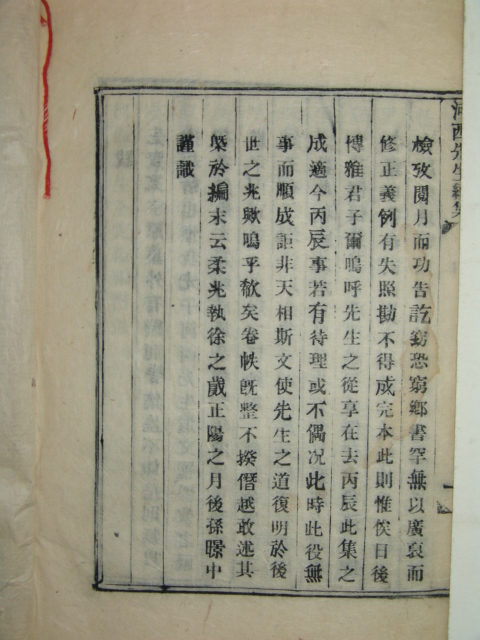 河西先生續集
檢攷閱月而功告訖竊恐窮鄉書罕無以廣裒而
修正義例有失照勘不得成完本此則惟俟日後
博雅君子爾嗚呼先生之從享在去丙辰此集之
成適今丙辰事若有待理或不偶况此時此役無
事而順成詎非天相斯文使先生之道復明於後
世之兆歟嗚乎欷矣卷帙旣整不揆僭越敢述其
槩於編末云柔兆執徐之歲正陽之月後孫㬢中
謹識